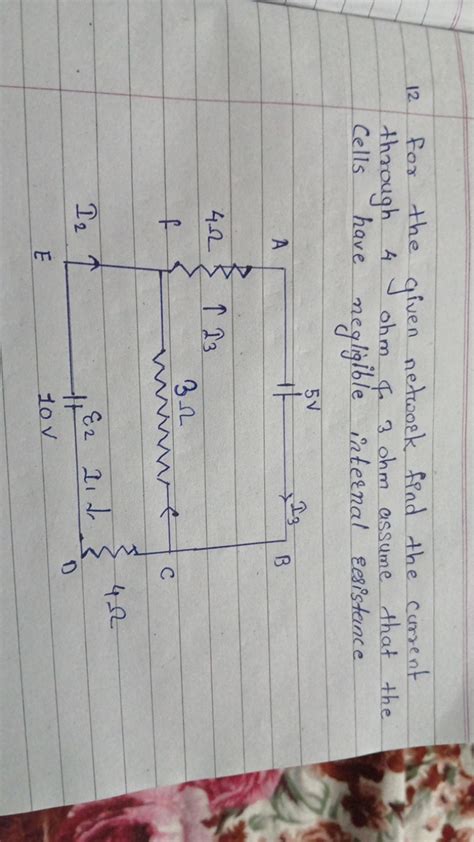 12 for the given network find the current
through 4 ohm & 3 ohm assume that the
Cells have negligible internal resistance
5V
I3
A
B
4Ω
I3
f
3Ω
C
I2
4Ω
E2
I1
E
10V
D